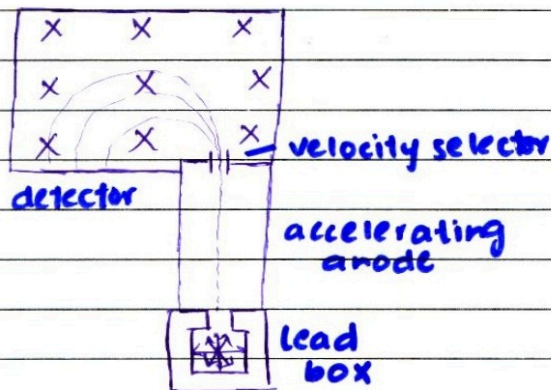 X X X
X X X
X X X
velocity selector
detector
accelerating
anode
lead
box